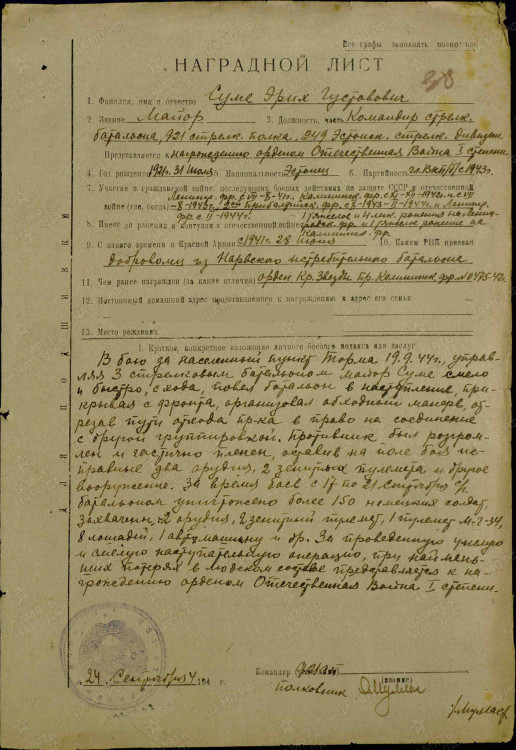 Все графы заполнять полностью
НАГРАДНОЙ ЛИСТ
1. Фамилия, имя и отчество Суме Эрих Густавович
2. Звание Майор 3. Должность, часть Командир стрелк.
батальона, 921 стрелк. полка, 249 Эстонск. стрелк. дивизии
Представляется к награждению орденом Отечественная Война I степени
4. Год рождения 1921г. 31 Июля 5. Национальность Эстонец 6. Партийность с 1943г.
7. Участие в гражданской войне, последующих боевых действиях по защите СССР и отечественной
войне (где, когда)
фр. с II-1944г.
8. Имеет ли ранения и контузии в отечественной войне
Калининск. фр.
9. С какого времени в Красной Армии с 1941г. 28 Июня 10. Каким РВК призван
добровольц из Нарвского истребительного батальона
11. Чем ранее награжден (за какие отличия) орден Кр. Звезды Пр. Калининск. фр. № 0475-42г.
12. Постоянный домашний адрес представляемого к награждению и адрес его семьи
13. Место рождения
1. Краткое, конкретное изложение личного боевого подвига или заслуг
В бою за населенный пункт Торма 19.9.44г., управ-
ляя 3 стрелковым батальоном майор Суме смело
и быстро, с хода, повел батальон в наступление, при-
крывая с фронта, организовал обходный маневр, от-
резав пути отхода пр-ка в право на соединение
с другой группировкой. Противник был разгром-
лен и частично пленен, оставив на поле боя ис-
правные два орудия, 2 зенитных пулемета и другое
вооружение. За время боев с 17 по 21 сентября с/г
батальоном уничтожено более 150 немецких солдат,
захвачены: 2 орудия, 2 зенитных пулемет, 1 пулемет М-Г-34,
8 лошадей, 1 автомашину и др. За проведенную умелую
и смелую наступательную операцию, при наимень-
ших потерях в людском составе представляется к на-
граждению орденом Отечественная Война I степени.
24 Сентября 194 4 г.
Командир 921 сп
(звание)
полковник